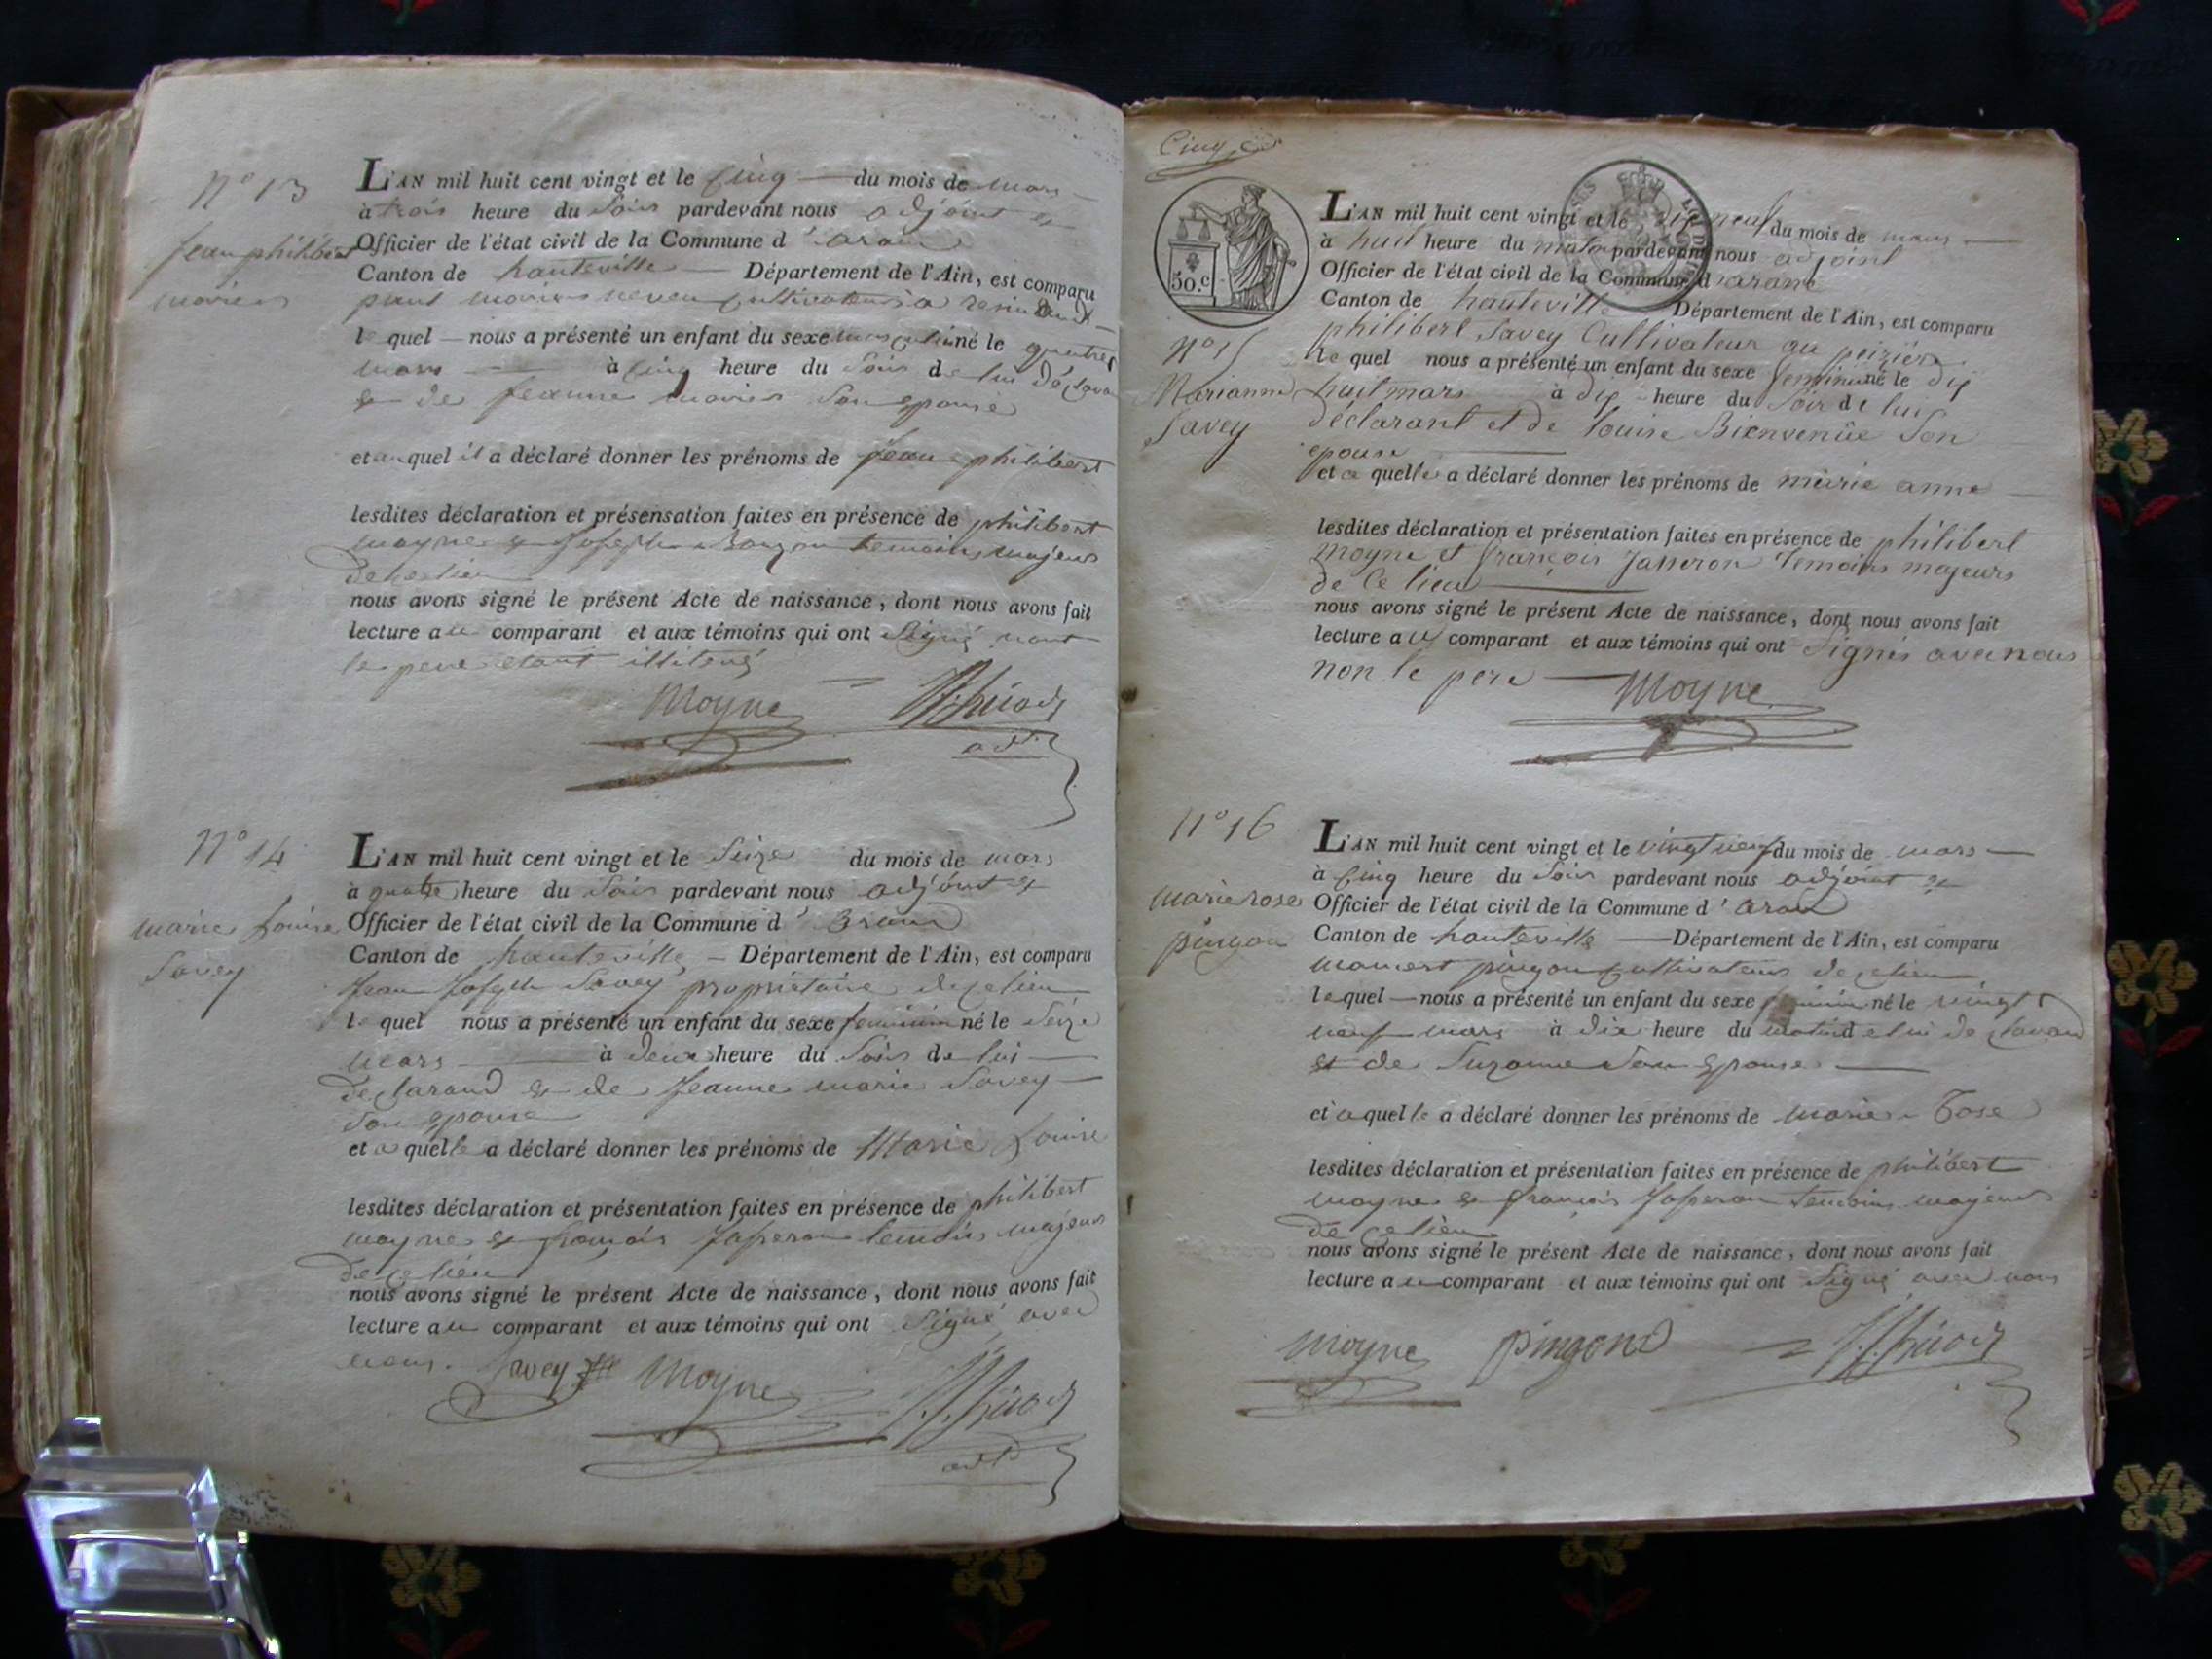 N° 13
Jean philibert
L'AN mil huit cent vingt et le Cinq du mois de mars
à trois heure du Soir pardevant nous adjoint et
Officier de l'état civil de la Commune d'aranc
Canton de hauteville Département de l'Ain, est comparu
le quel nous a présenté un enfant du sexe masculin né le quatre
mars à Cinq heure du Soir de lui déclarant
et de jeanne Son epouse
et au quel il a déclaré donner les prénoms de jean philibert
lesdites déclaration et présensation faites en présence de philibert
moyne et joseph temoins majeurs
de ce lieu
nous avons signé le présent Acte de naissance, dont nous avons fait
lecture au comparant et aux témoins qui ont Signé
le pere etant illiteré
Moyne
N° 14
marie Louise
Savey
L'AN mil huit cent vingt et le Seize du mois de mars
à quatre heure du Soir pardevant nous adjoint et
Officier de l'état civil de la Commune d'aranc
Canton de hauteville Département de l'Ain, est comparu
jean joseph Savey propriétaire de ce lieu
le quel nous a présenté un enfant du sexe feminin né le Seize
mars à deux heure du Soir de lui
declarand et de jeanne marie Savey
Son epouse
et a quelle a déclaré donner les prénoms de Marie Louise
lesdites déclaration et présentation faites en présence de philibert
moyne et françois jasseron temoins majeurs
de ce lieu
nous avons signé le présent Acte de naissance, dont nous avons fait
lecture au comparant et aux témoins qui ont Signé avec
nous. Savey Moyne
Cinq
50.c
N° 15
Marianne
Savey
L'AN mil huit cent vingt et le dix neuf du mois de mars
à huit heure du matin pardevant nous adjoint
Officier de l'état civil de la Commune d'aranc
Canton de hauteville Département de l'Ain, est comparu
philibert Savey Cultivateur au
le quel nous a présenté un enfant du sexe feminin né le dix
huit mars à dix heure du Soir de lui
déclarant et de louise Bienvenüe Son
epouse
et a quelle a déclaré donner les prénoms de marie anne
lesdites déclaration et présentation faites en présence de philibert
Moyne et françois Jasseron Temoins majeurs
de Ce lieu
nous avons signé le présent Acte de naissance, dont nous avons fait
lecture au comparant et aux témoins qui ont Signés avec nous
non le pere Moyne
N° 16
marie rose
pingon
L'AN mil huit cent vingt et le vingt neuf du mois de mars
à Cinq heure du Soir pardevant nous adjoint et
Officier de l'état civil de la Commune d'aranc
Canton de hauteville Département de l'Ain, est comparu
pingon Cultivateur de ce lieu
le quel nous a présenté un enfant du sexe feminin né le vingt
neuf mars à dix heure du matin de lui declarand
et de Suzanne Son epouse
et a quelle a déclaré donner les prénoms de marie Rose
lesdites déclaration et présentation faites en présence de philibert
moyne et françois jasseron temoins majeurs
de ce lieu
nous avons signé le présent Acte de naissance, dont nous avons fait
lecture au comparant et aux témoins qui ont Signé avec nous
Moyne pingond